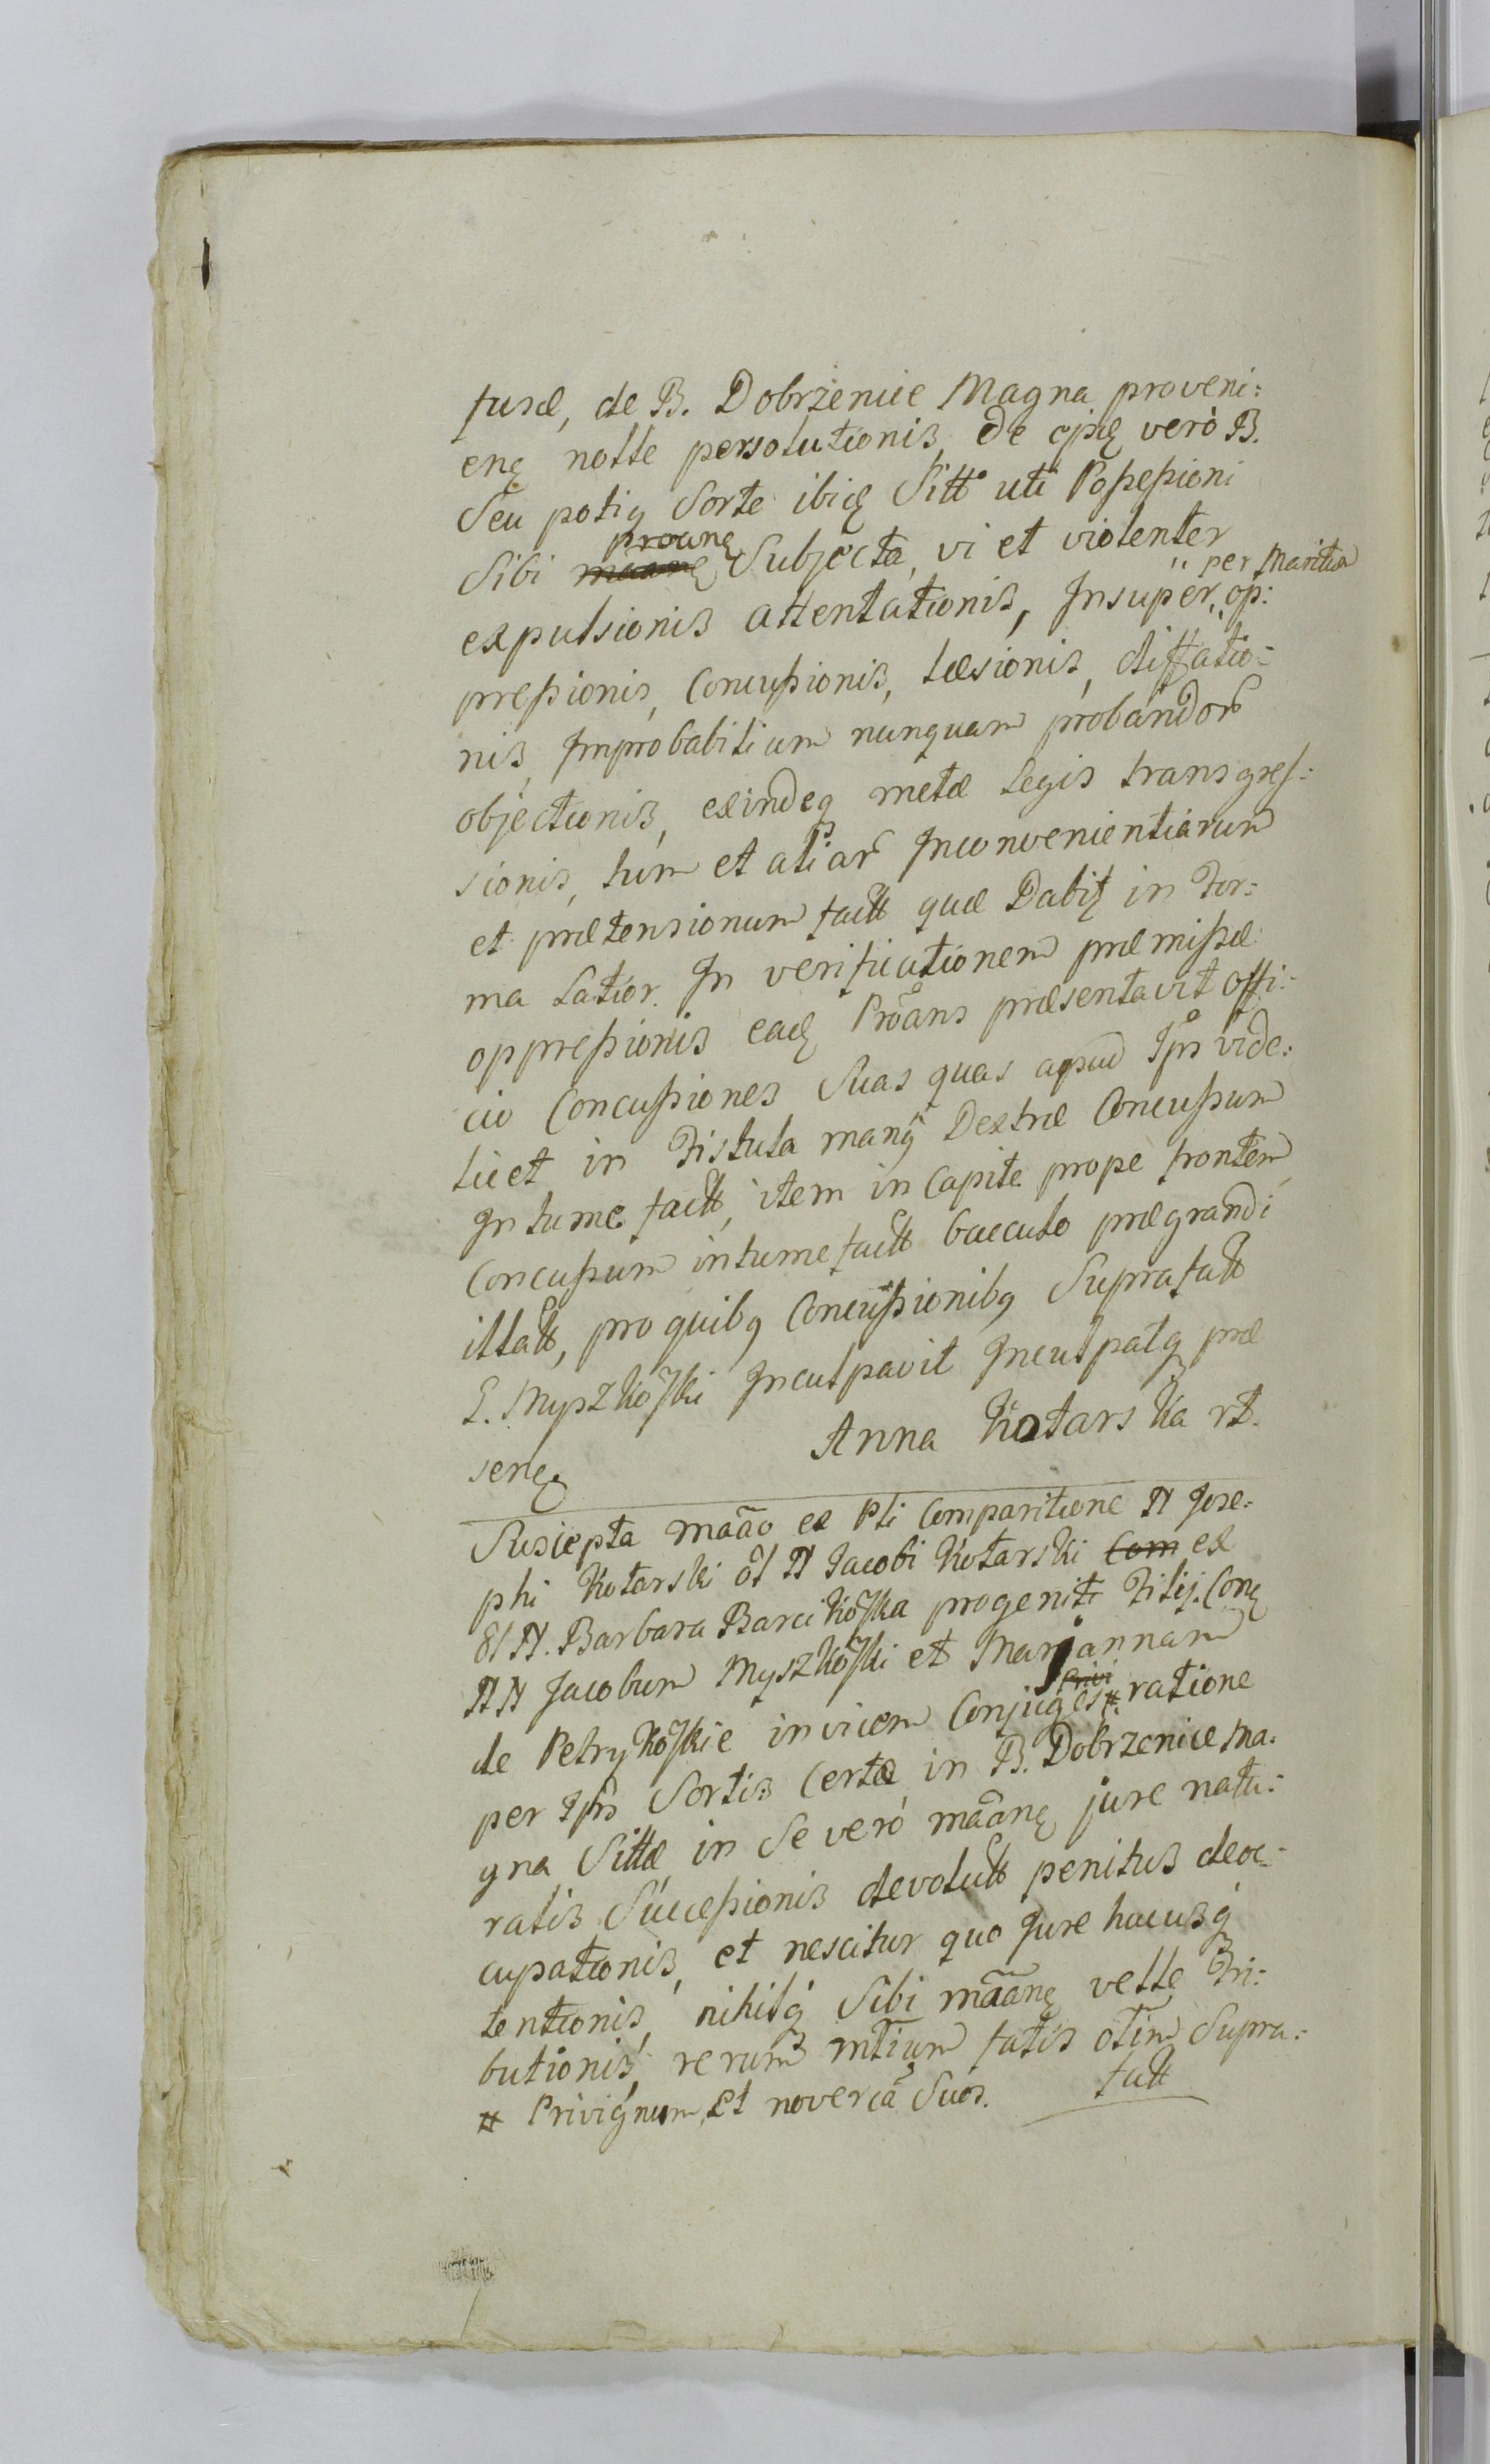 furæ, de B. Dobrzenice Magna proveni:
enę nolle persolutionis, de ejsdę verò B.
Seu potiq Sorte ibidę Sitt uti Possessioni
Sibi proanę Subjecta, vi et violenter
expulsionis attentationis, Insuper, per Maritũ op:
pressionis, Concussionis, læsionis, diffatio:
nis, Improbabilium nunquam probandor
objectionis, exindeq metæ Legis transgres:
sionis, tum et aliar Inconvenientiarum
et prætensionum fact quæ Dabit in For:
ma Latior. In verificationem præmissæ
oppressionis eadę Proans præsentavit offi:
cio Concussiones Suas quas apud Ipsā vide:
licet in Fistula manq Dextræ Concussum
Intumefact, item in Capite prope frontem
Concussum intumefact bacculo prægrandi
illatt, pro quibq Concussionibq Suprafatt
G. Myszkoski Inculpavit Inculpatq præ
senę
Anna Kotarska rt.
Suscepta mãão ex Pli Comparitione N Jose:
phi Kotarski ol N Jacobi Kotarski Com ex
ol N. Barbara Barcikoska progeniti Filij. Conę
NN Jacobum Myszkoski et Mariannam
de Petrykoskie invicem Conjuges Privi # ratione
per Ipsõ Sortis Certæ in B. Dobrzenice Ma:
gna Sittæ in Se verò mãanę jure natu:
ralis Successionis devolutt penitus deoc:
cupationis, et nescitur quo Jure hucusq
tentionis, nihilq Sibi mãanę velle Tri:
butionis, rerum mtium fatis otim Supra:
fatt
# Privignum, Et novercã Suos.